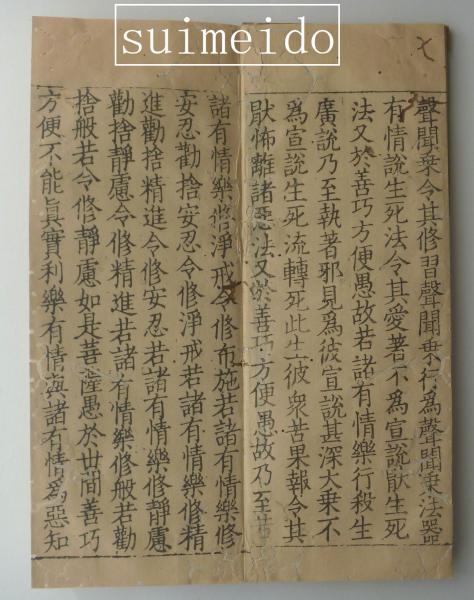 suimeido
聲聞乗令其修習聲聞乗行爲聲聞乗法器
有情說生死法令其愛著不爲宣說猒生死
法又於善巧方便愚故若諸有情樂行殺生
廣說乃至執著邪見爲彼宣說甚深大乗不
爲宣說生死流轉死此生彼衆苦果報令其
猒怖離諸惡法又於善巧方便愚故乃至若
諸有情樂修淨戒令修布施若諸有情樂修
安忍勸捨安忍令修淨戒若諸有情樂修精
進勸捨精進令修安忍若諸有情樂修靜慮
勸捨靜慮令修精進若諸有情樂修般若勸
捨般若令修靜慮如是菩薩愚於世間善巧
方便不能真實利樂有情與諸有情爲惡知